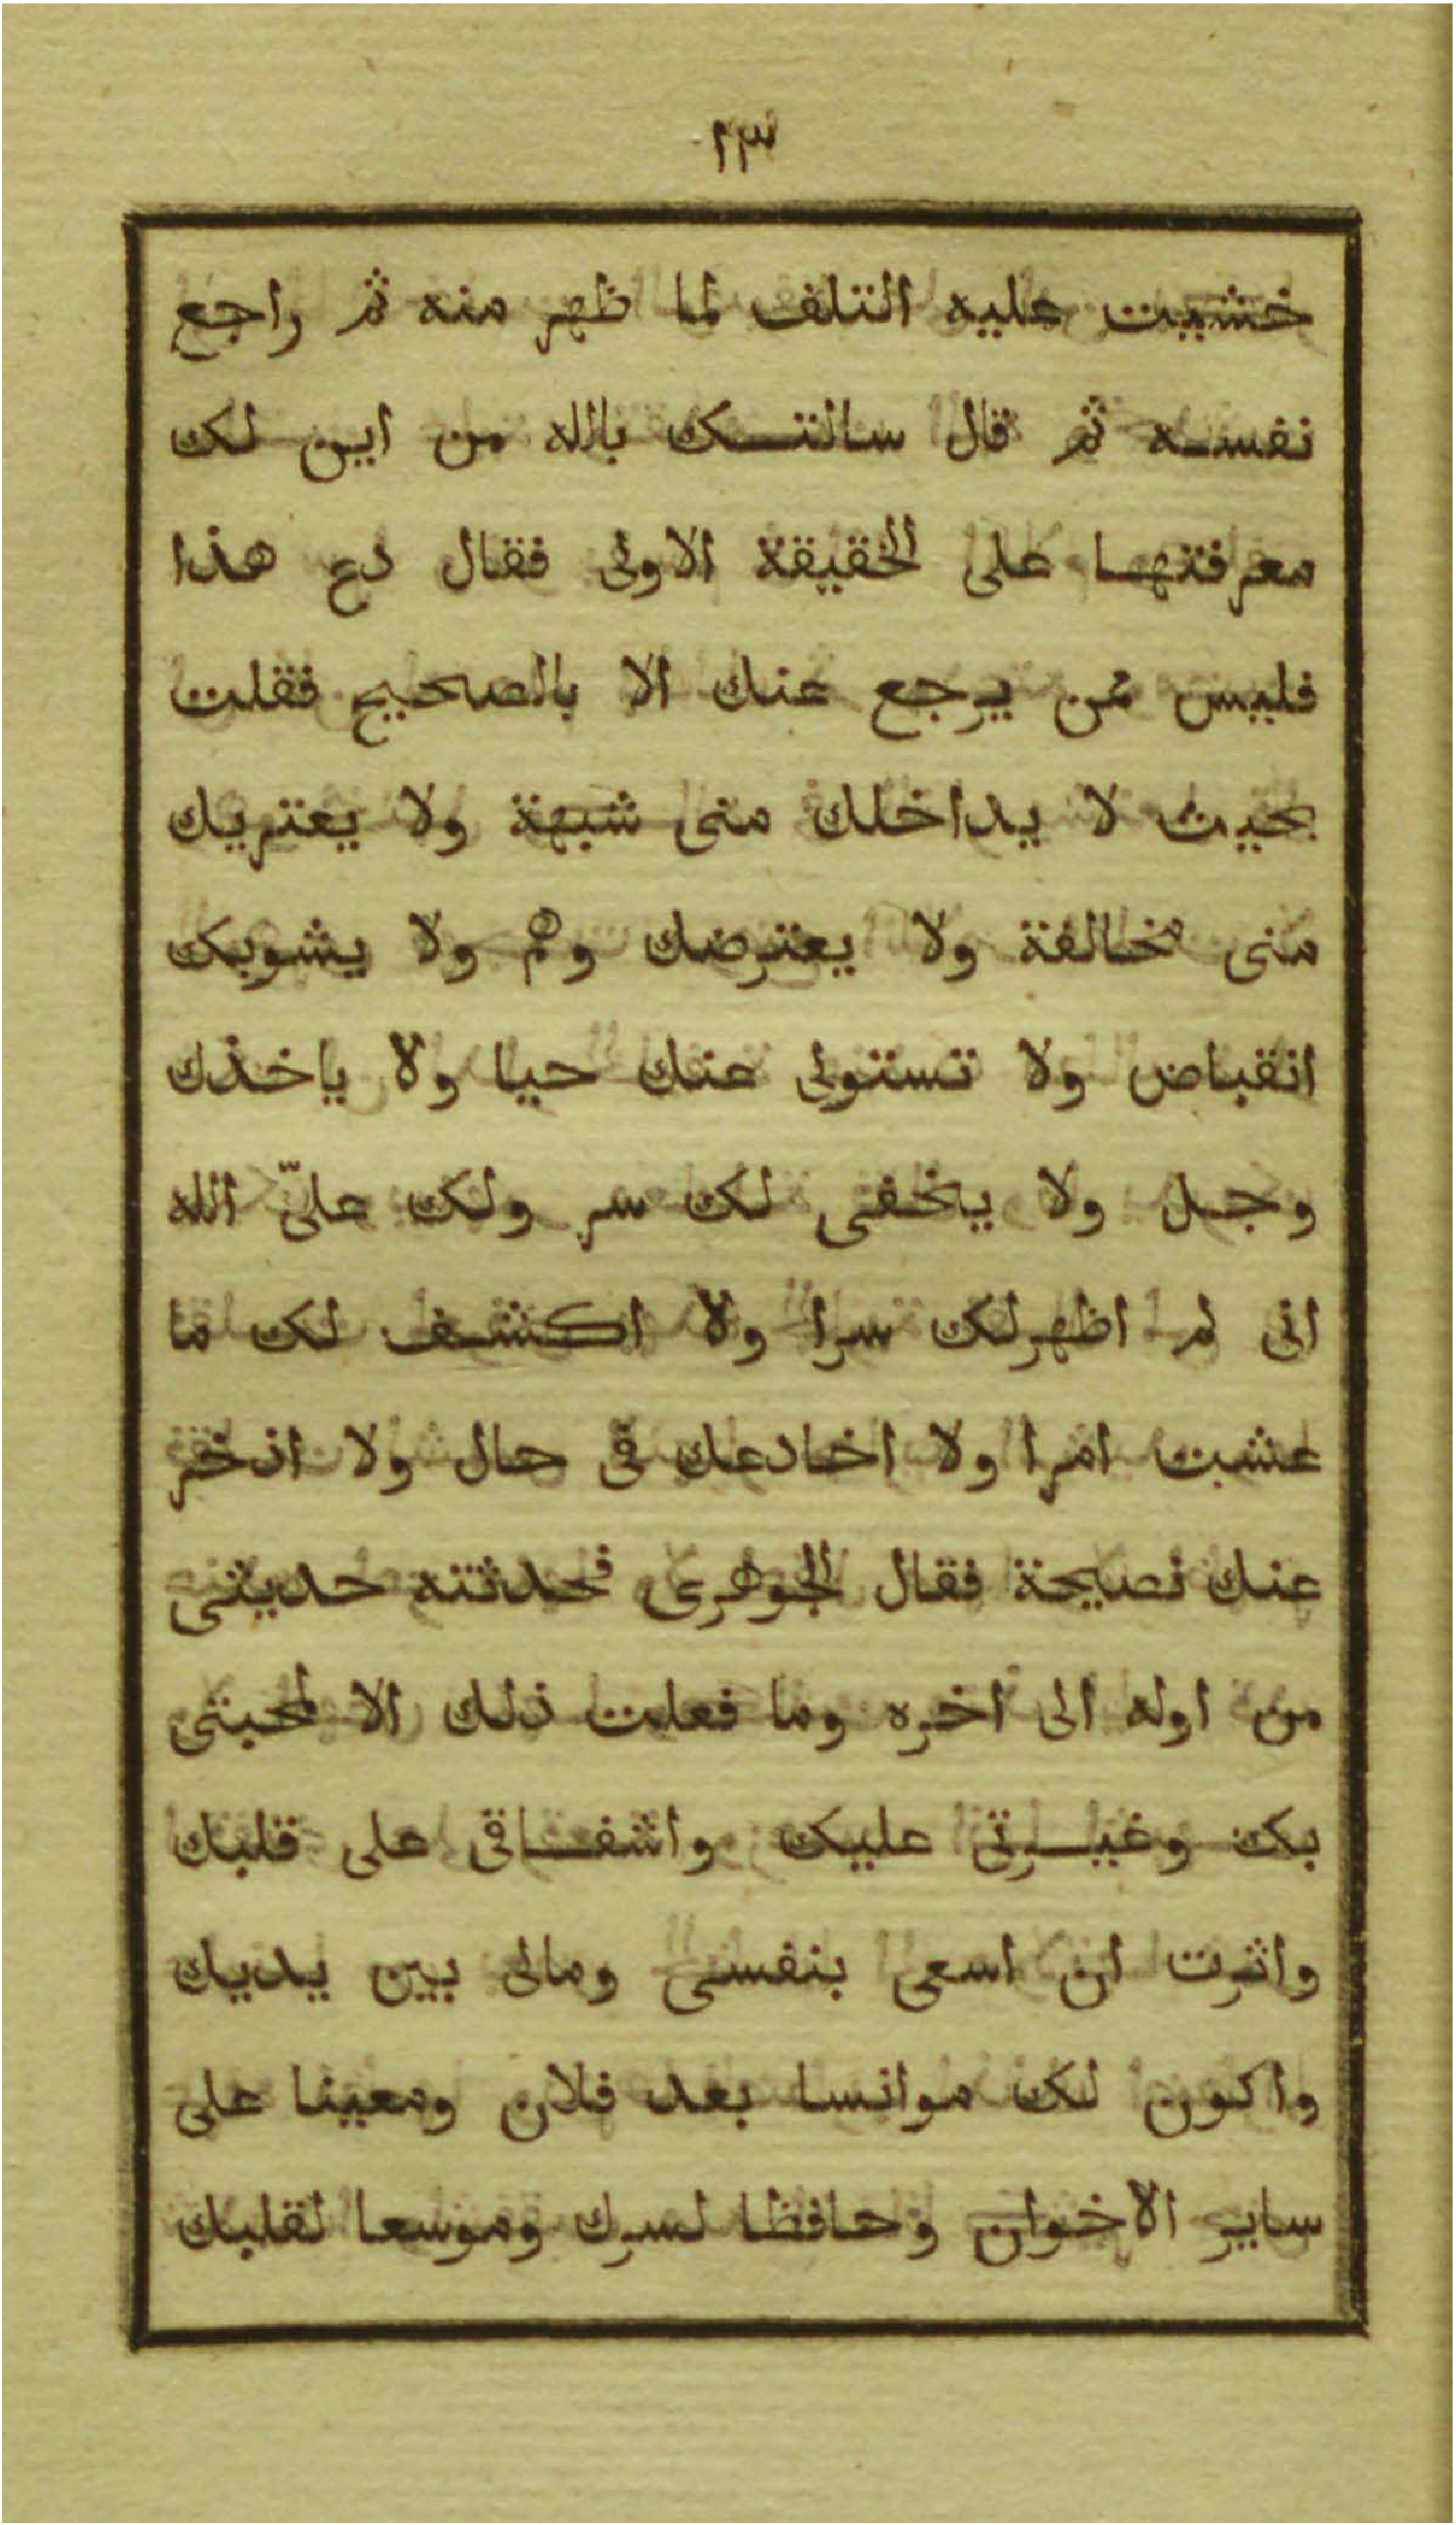 ١٣
خشيت عليه التلف لما ظهر منه ثم راجع
نفسه ثم قال سالتك بالله من اين لك
معرفتها على الحقيقة الاولى فقال دع هذا
فليس ممن يرجع عنك الا بالصحيح فقلت
بحيث لا يداخلك منى شبهة ولا يعتريك
منى مخالفة ولا يعترضك وهم ولا يشوبك
انقباض ولا تستولى عنك حيا ولا ياخذك
وجل ولا يخفى لك سر ولك علىّ الله
انى لم اظهرلك سرا ولا اكشف لك ما
عشت امرا ولا اخادعك فى حال ولا اذخر
عنك نصيحة فقال الجوهرى فحدثته حديثى
من اوله الى اخره وما فعلت ذلك الا لمحبتى
بك وغيرتى عليك واشفاقى على قلبك
واثرت ان اسعى بنفسى ومالى بين يديك
واكون لك موانسا بعد فلان ومعينا على
ساير الاخوان وحافظا لسرك وموسعا لقلبك